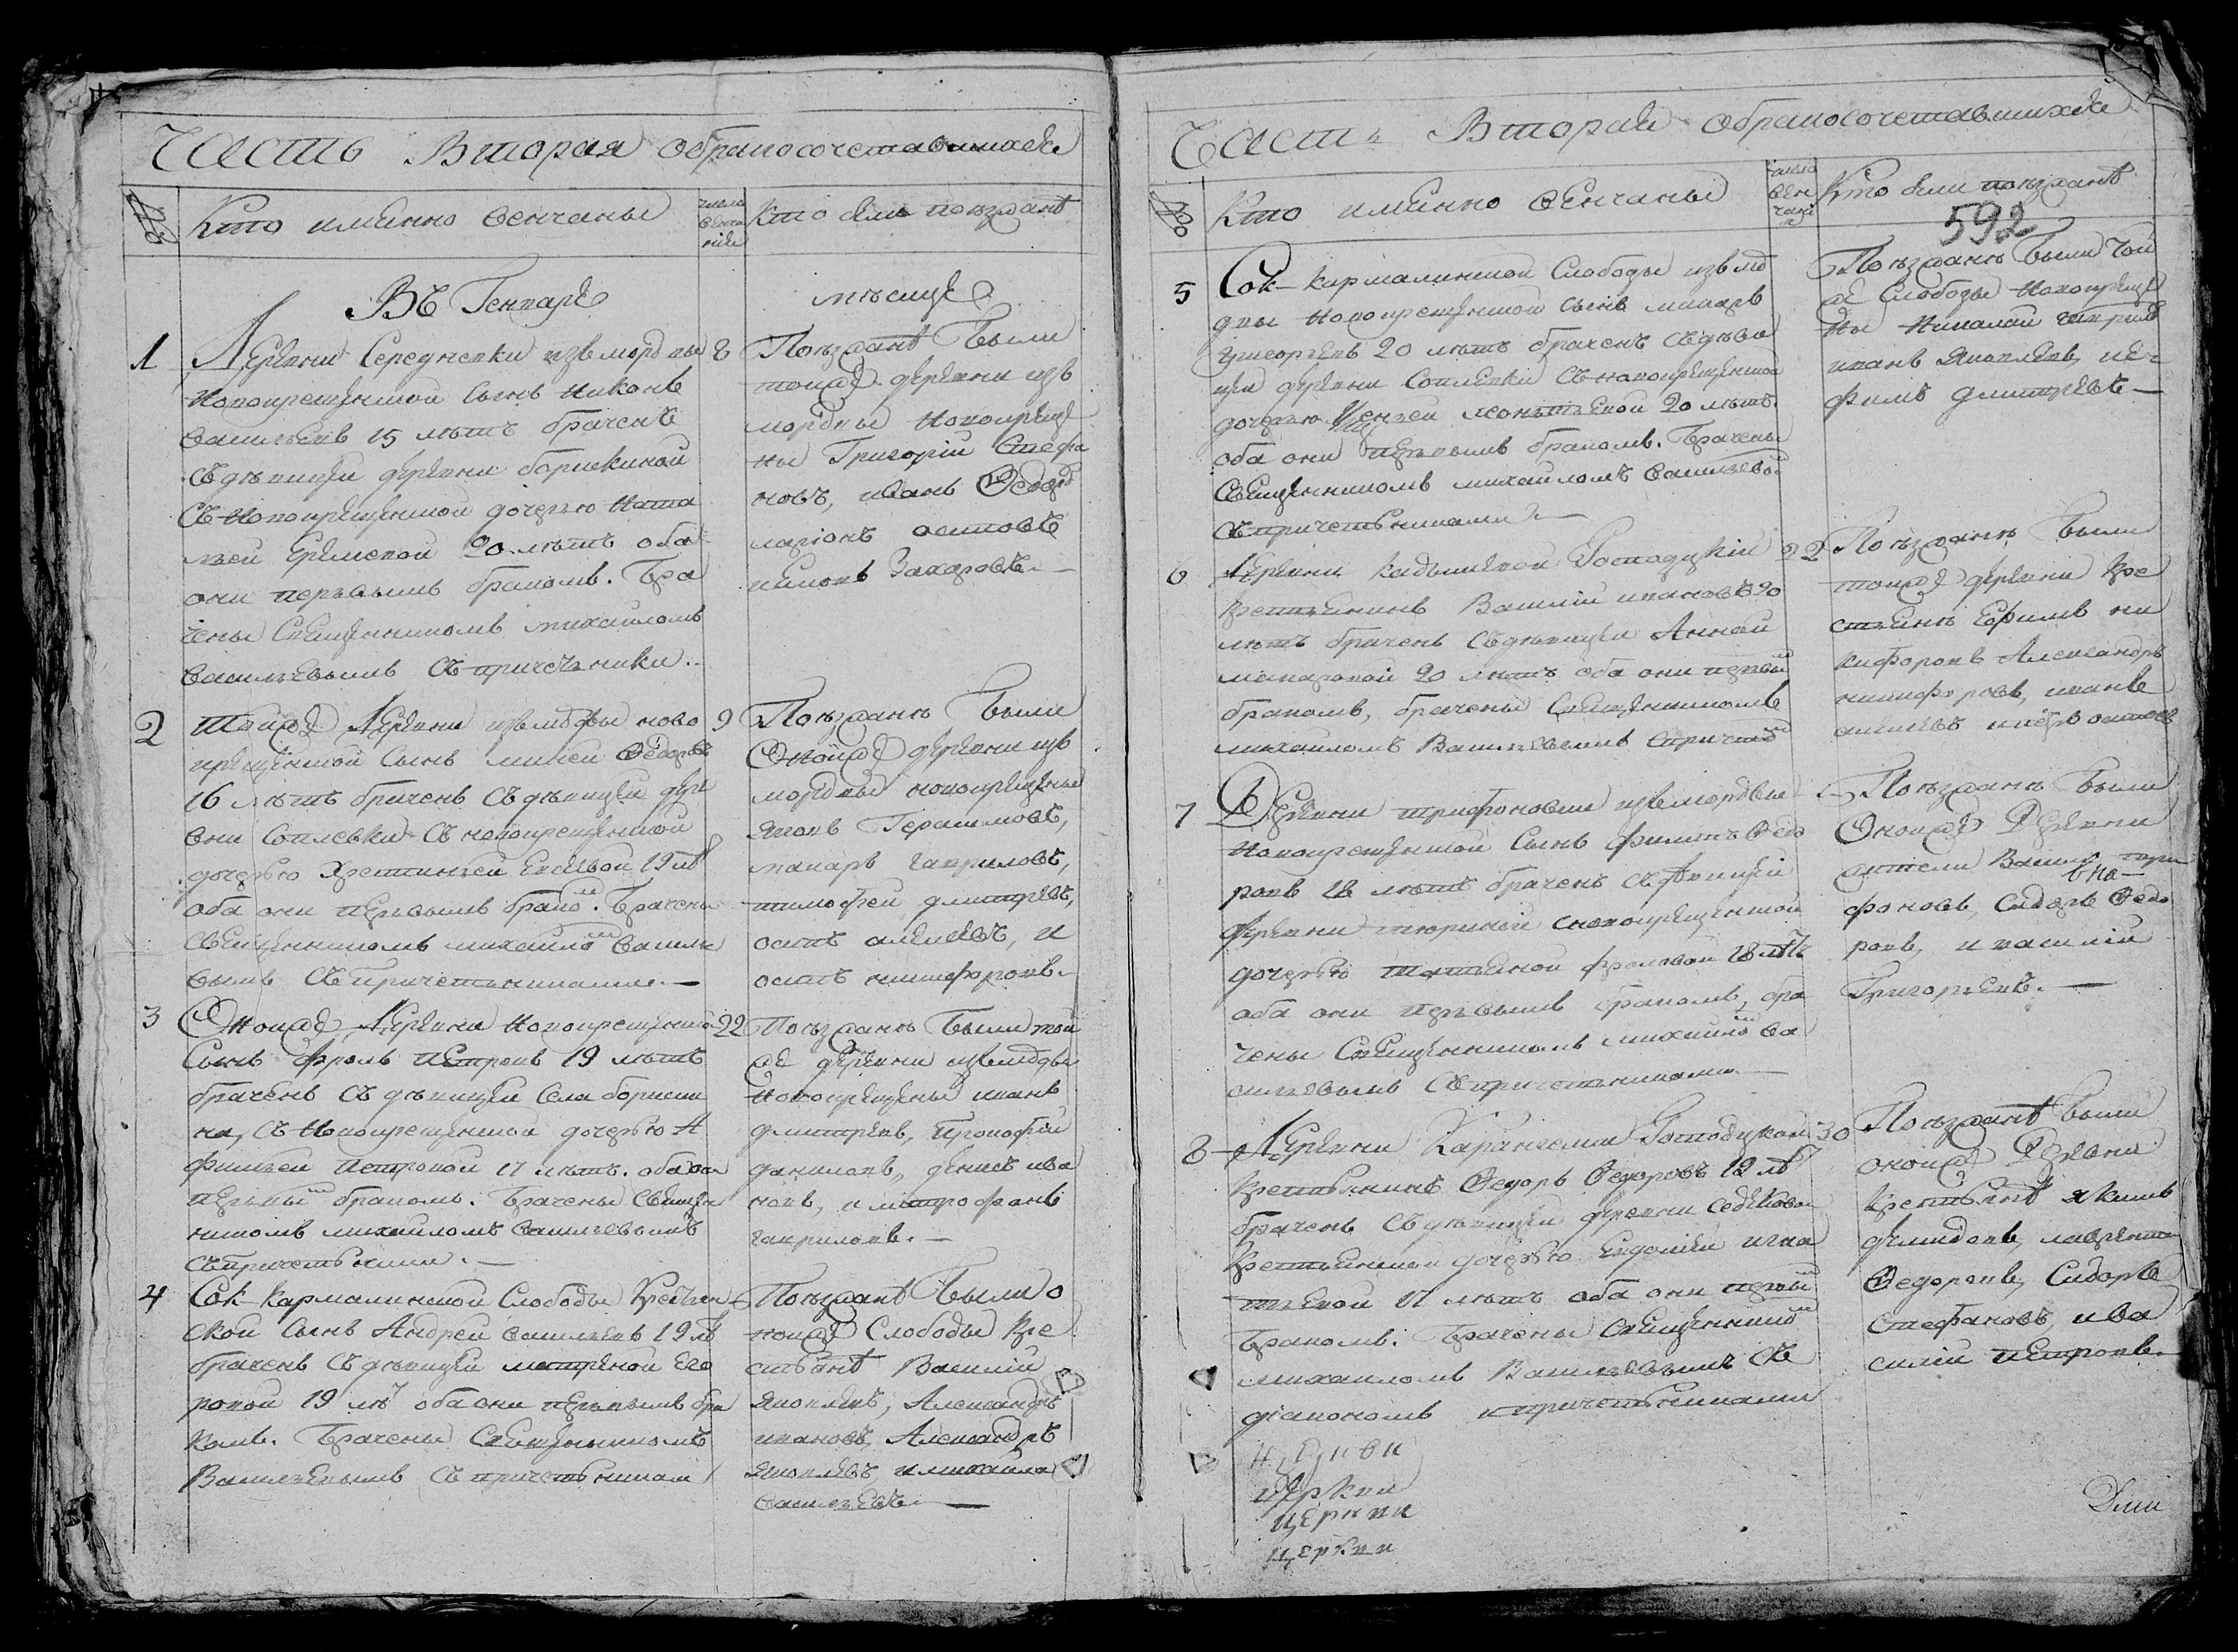 Часть Вторая обракосочетавшихся
№
Кто именно венчаны
число венча нiя
Кто были поѣзжанѣ
Въ Генваре
мѣсяце
1
Деревни Середневки изъ мордвы
новокрещенской сынъ Никонъ
Васильевъ 15 лѣтъ браченъ
съ девицеи деревни борискиной
съ новокрещенской дочерью Ната
льеи Еремевой 20 лѣтъ оба
они первымъ бракомъ. Бра
чены Священникомъ михаиломъ
Васильевымъ съ причетники.
8
Поѣзжанѣ были
тоижъ деревни изъ
мордвы новокреще
ны Григорiи Стефа
новъ, иванъ Ѳедоро
ларiонъ осиповъ
Захаровъ
2
тоижъ Деревни изъ мордвы ново
крещенской сынъ Ѳедоровъ
16 лѣтъ браченъ съ девицеи дере
вни съ новокрещенской
дочерью 19 лѣ
оба они первымъ брако м. Брачены
Священникомъ михаило м Василье
вымъ съ причетниками
9
Поѣзжанѣ были
Оноижъ деревни изъ
мордвы новокрещены
Яковъ Герасимовъ,
макаръ гавриловъ,
тимофеи дмитревъ,
осипъ алексеевъ, и
осипъ никифоровъ.
3
Оноижъ Деревни новокрещенской
сынъ фролъ петровъ 19 лѣтъ
браченъ съ девицеи села бориски
на, съ новокрещенской дочерью А
фимьеи петровой 17 лѣтъ. оба они
первы м бракомъ. Брачены Священ
никомъ михаиломъ Васильевымъ
съ причетники
22
Поѣзжанѣ были той
же деревни изъ мордвы
новокрещены иванъ
дмитревъ, Прокофiи
даниловъ, денисъ ива
новъ, и митрофанъ
гавриловъ.
4
Сок-кармалинской Слободы Крестьян
ской сынъ Андреи Васильевъ 19 лѣ
браченъ съ девицеи матреной Его
ровой 19 лѣ оба они первымъ бра
комъ. Брачены Священникомъ
Васильевымъ съ причетниками
Поѣзжанѣ были о
ноижъ Слободы кре
стьянѣ Василiи
Яковлевъ, Александръ
ивановъ, Александръ
Яковлевъ, и михаила
Васильевъ.
Часть Вторая обракосочетавшихся
№
Кто именно венчаны
число вен чанi я
Кто были поѣзжанѣ
592
5
Сок-кармалинской Слободы изъ мо
двы новокрещенской сынъ макаръ
григорьевъ 20 лѣтъ браченъ съ деви
цеи деревни съ новокрещенской
дочерью 20 лѣтъ.
оба они первымъ бракомъ. Брачены
Священникомъ михаиломъ Васильевы
съ причетниками
Поѣзжанѣ были той
же Слободы новокреще
ны Николаи гаврило
иванъ Яковлевъ, не
филъ дмитревъ
6
Деревни Кадышевой Господскiй
крестьянинъ Василiи ивановъ 20
лѣтъ браченъ съ девицеи Анной
макаровой 20 лѣтъ оба они первы м
бракомъ, брачены Священникомъ
михаиломъ Васильевымъ с причет
22
Поѣзжанѣ были
тоижъ деревни кре
стьянѣ Ефимъ ни
кифоровъ Александръ
никифоровъ, иванъ
алексеевъ и петръ осиповъ
7
Деревни трифоновки изъ мордвы
новокрещенской сынъ филипъ Ѳедо
ровъ 18 лѣтъ браченъ съ девицеи
деревни с новокрещенской
дочерью татьяной фроловой 18 лѣтъ
оба они первымъ бракомъ, бра
чены Священникомъ михаило м Ва
сильевымъ съ причетниками
Поѣзжанѣ были
Оноижъ Деревни
жители Василiи
фоновъ, Сидоръ Ѳедо
ровъ, и василiи
Григорьевъ.
8
Деревни Господской
крестьянинъ Ѳедоръ Ѳедоровъ 18 лѣ
браченъ съ девицеи деревни
крестьянской дочерью Евдокiеи игна
тьевой 17 лѣтъ оба они первы м
бракомъ. Брачены Священнико м
михаиломъ Васильевымъ съ
дiакономъ и причетниками
30
Поѣзжанѣ были
оноижъ Деревни
Крестьянѣ якимъ
демидовъ, лаврентеи
Ѳедоровъ, Сидоръ
Стефановъ, и Ва
силiи петровъ
церкви
церкви
церкви
церкви